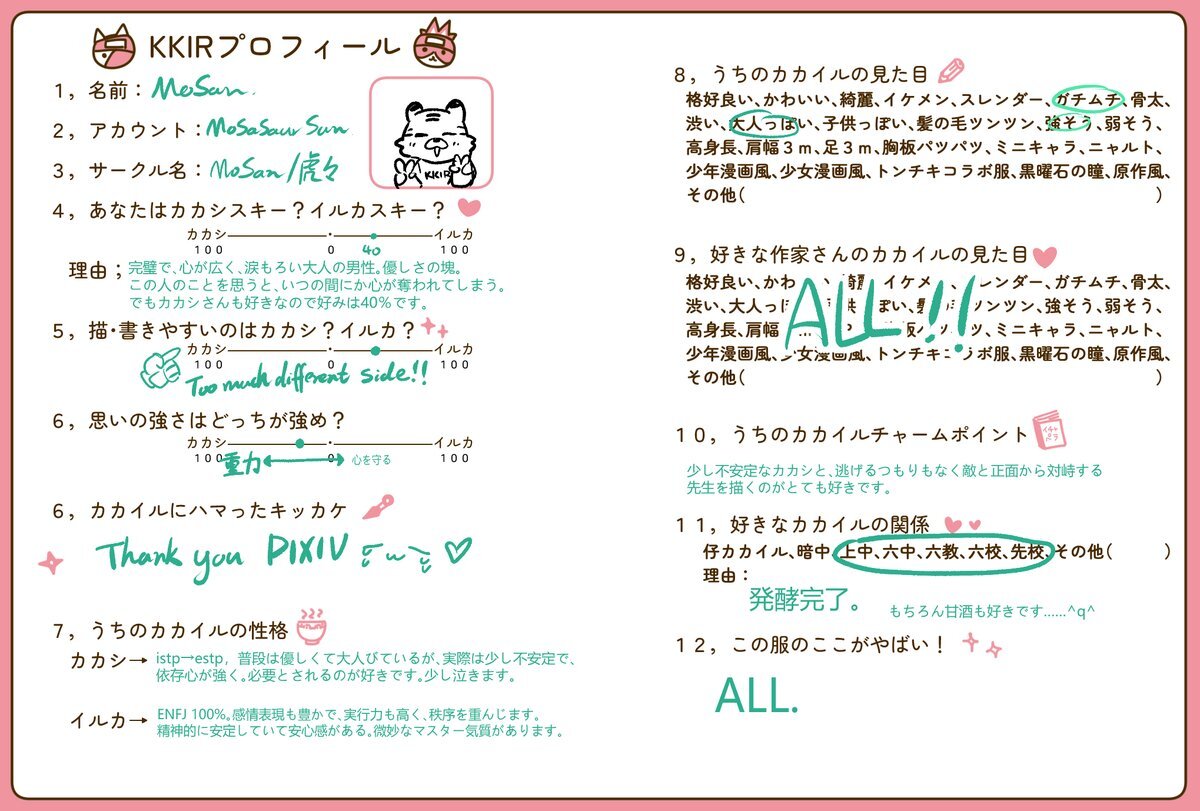 KKIRプロフィール
1，名前：MoSan.
2，アカウント：MoSaSaur Sun
3，サークル名：MoSan/虎々
KKIR
4，あなたはカカシスキー？イルカスキー？
カカシ・イルカ
100 0 40 100
理由；完璧で、心が広く、涙もろい大人の男性。優しさの塊。
この人のことを思うと、いつの間にか心が奪われてしまう。
でもカカシさんも好きなので好みは40％です。
5，描・書きやすいのはカカシ？イルカ？
カカシ・イルカ
100 0 100
Too much different side!!
6，思いの強さはどっちが強め？
カカシ・イルカ
100 0 100
重力 心を守る
6，カカイルにハマったキッカケ
Thank you PIXIV
7，うちのカカイルの性格
カカシ→ istp→estp，普段は優しくて大人びているが、実際は少し不安定で、
依存心が強く。必要とされるのが好きです。少し泣きます。
イルカ→ ENFJ 100%。感情表現も豊かで、実行力も高く、秩序を重んじます。
精神的に安定していて安心感がある。微妙なマスター気質があります。
8，うちのカカイルの見た目
格好良い、かわいい、綺麗、イケメン、スレンダー、ガチムチ、骨太、
渋い、大人っぽい、子供っぽい、髪の毛ツンツン、強そう、弱そう、
高身長、肩幅３ｍ、足３ｍ、胸板パツパツ、ミニキャラ、ニャルト、
少年漫画風、少女漫画風、トンチキコラボ服、黒曜石の瞳、原作風、
その他（ ）
9，好きな作家さんのカカイルの見た目
格好良い、かわ 綺麗、イケメン、スレンダー、ガチムチ、骨太、
渋い、大人っぽ 子供っぽい、髪 ツンツン、強そう、弱そう、
高身長、肩幅 胸板パツパツ、ミニキャラ、ニャルト、
少年漫画風、少女漫画風、トンチキコラボ服、黒曜石の瞳、原作風、
その他（ ）
ALL!!
10，うちのカカイルチャームポイント
イチャパラ
少し不安定なカカシと、逃げるつもりもなく敵と正面から対峙する
先生を描くのがとても好きです。
11，好きなカカイルの関係
仔カカイル、暗中、上中、六中、六教、六校、先校、その他（ ）
理由：
発酵完了。 もちろん甘酒も好きです……^q^
12，この服のここがやばい！
ALL.